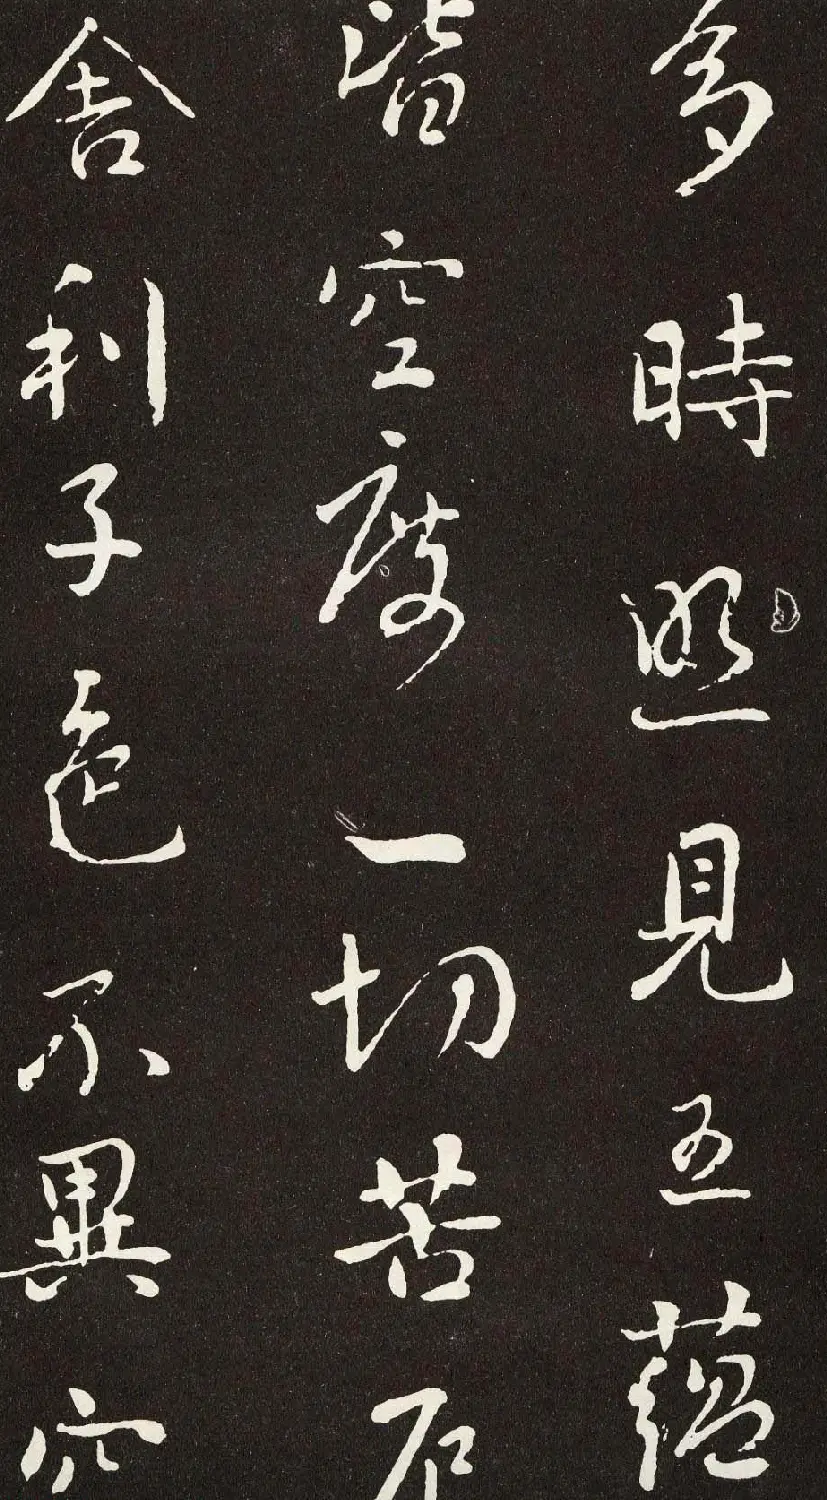 多時照見五蘊
皆空度一切苦厄
舍利子色不異空